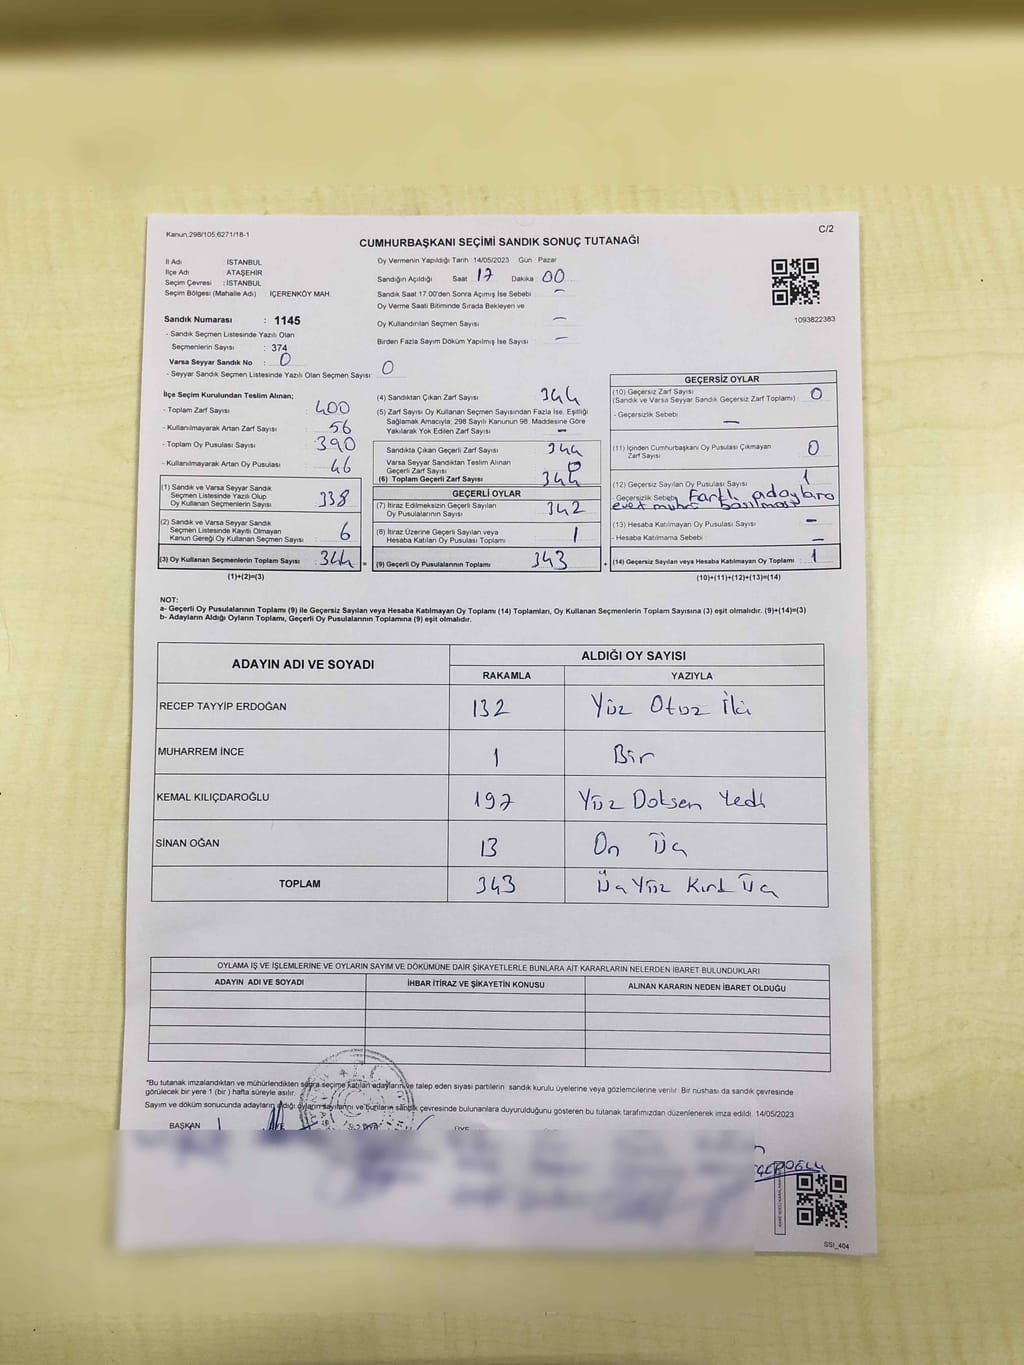 Kanun:298/105,6271/18-1
C/2
CUMHURBAŞKANI SEÇİMİ SANDIK SONUÇ TUTANAĞI
İl Adı : İSTANBUL
İlçe Adı : ATAŞEHİR
Seçim Çevresi : İSTANBUL
Seçim Bölgesi (Mahalle Adı) İÇERENKÖY MAH.
Oy Vermenin Yapıldığı Tarih :14/05/2023 Gün : Pazar
Sandığın Açıldığı Saat : 17 Dakika : 00
Sandık Saat 17:00'den Sonra Açımış İse Sebebi -
Oy Verme Saati Bitiminde Sırada Bekleyen ve
Oy Kullandırılan Seçmen Sayısı -
Birden Fazla Sayım Döküm Yapılmış İse Sayısı -
1093822383
Sandık Numarası : 1145
- Sandık Seçmen Listesinde Yazılı Olan
Seçmenlerin Sayısı : 374
Varsa Seyyar Sandık No : 0
- Seyyar Sandık Seçmen Listesinde Yazılı Olan Seçmen Sayısı: 0
İlçe Seçim Kurulundan Teslim Alınan;
- Toplam Zarf Sayısı : 400
- Kullanılmayarak Artan Zarf Sayısı : 56
- Toplam Oy Pusulası Sayısı : 390
- Kullanılmayarak Artan Oy Pusulası : 46
(1) Sandık ve Varsa Seyyar Sandık
Seçmen Listesinde Yazılı Olup
Oy Kullanan Seçmenlerin Sayısı : 338
(2) Sandık ve Varsa Seyyar Sandık
Seçmen Listesinde Kayıtlı Olmayan
Kanun Gereği Oy Kullanan Seçmen Sayısı : 6
(3) Oy Kullanan Seçmenlerin Toplam Sayısı : 344 =
(1)+(2)=(3)
(4) Sandıktan Çıkan Zarf Sayısı : 344
(5) Zarf Sayısı Oy Kullanan Seçmen Sayısından Fazla İse, Eşitliği
Sağlamak Amacıyla; 298 Sayılı Kanunun 98. Maddesine Göre
Yakılarak Yok Edilen Zarf Sayısı : -
Sandıkta Çıkan Geçerli Zarf Sayısı : 344
Varsa Seyyar Sandıktan Teslim Alınan
Geçerli Zarf Sayısı : 0
(6) Toplam Geçerli Zarf Sayısı : 344
GEÇERLİ OYLAR
(7) İtiraz Edilmeksizin Geçerli Sayılan
Oy Pusulalarının Sayısı : 342
(8) İtiraz Üzerine Geçerli Sayılan veya
Hesaba Katılan Oy Pusulası Toplamı : 1
(9) Geçerli Oy Pusulalarının Toplamı : 343 +
GEÇERSİZ OYLAR
(10) Geçersiz Zarf Sayısı
(Sandık ve Varsa Seyyar Sandık Geçersiz Zarf Toplamı) : 0
- Geçersizlik Sebebi :
-
(11) İçinden Cumhurbaşkanı Oy Pusulası Çıkmayan
Zarf Sayısı : 0
(12) Geçersiz Sayılan Oy Pusulası Sayısı : 1
- Geçersizlik Sebebi : Farklı adaylara
evet mührü basılması
(13) Hesaba Katılmayan Oy Pusulası Sayısı : -
- Hesaba Katılmama Sebebi : -
(14) Geçersiz Sayılan veya Hesaba Katılmayan Oy Toplamı : 1
(10)+(11)+(12)+(13)=(14)
NOT:
a- Geçerli Oy Pusulalarının Toplamı (9) ile Geçersiz Sayılan veya Hesaba Katılmayan Oy Toplamı (14) Toplamları, Oy Kullanan Seçmenlerin Toplam Sayısına (3) eşit olmalıdır. (9)+(14)=(3)
b- Adayların Aldığı Oyların Toplamı, Geçerli Oy Pusulalarının Toplamına (9) eşit olmalıdır.
ADAYIN ADI VE SOYADI
ALDIĞI OY SAYISI
RAKAMLA YAZIYLA
RECEP TAYYİP ERDOĞAN 132 Yüz Otuz İki
MUHARREM İNCE 1 Bir
KEMAL KILIÇDAROĞLU 197 Yüz Doksen Yedi
SİNAN OĞAN 13 On Üç
TOPLAM 343 Üç Yüz Kırk Üç
OYLAMA İŞ VE İŞLEMLERİNE VE OYLARIN SAYIM VE DÖKÜMÜNE DAİR ŞİKAYETLERLE BUNLARA AİT KARARLARIN NELERDEN İBARET BULUNDUKLARI
ADAYIN ADI VE SOYADI İHBAR İTİRAZ VE ŞİKAYETİN KONUSU ALINAN KARARIN NEDEN İBARET OLDUĞU
"Bu tutanak imzalandıktan ve mühürlendikten sonra seçime katılan adayların ve talep eden siyasi partilerin sandık kurulu üyelerine veya gözlemcilerine verilir. Bir nüshası da sandık çevresinde
görülecek bir yere 1 (bir ) hafta süreyle asılır.
Sayım ve döküm sonucunda adayların aldığı oyların sayılarını ve bunların sandık çevresinde bulunanlara duyurulduğunu gösteren bu tutanak tarafımızdan düzenlenerek imza edildi. 14/05/2023
BAŞKAN ÜYE
SSI_404